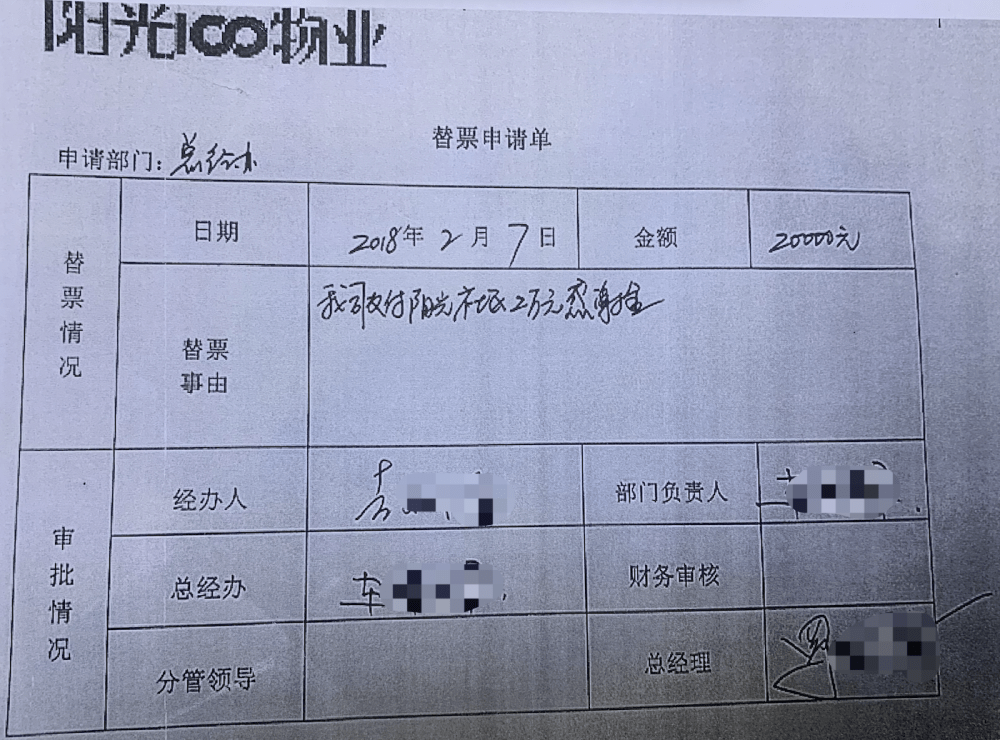 阳光100物业
替票申请单
申请部门：总经办
替票情况
日期
2018年2月7日
金额
20000元
替票事由
我司支付阳光社区2万元感谢金
审批情况
经办人
部门负责人
总经办
财务审核
分管领导
总经理